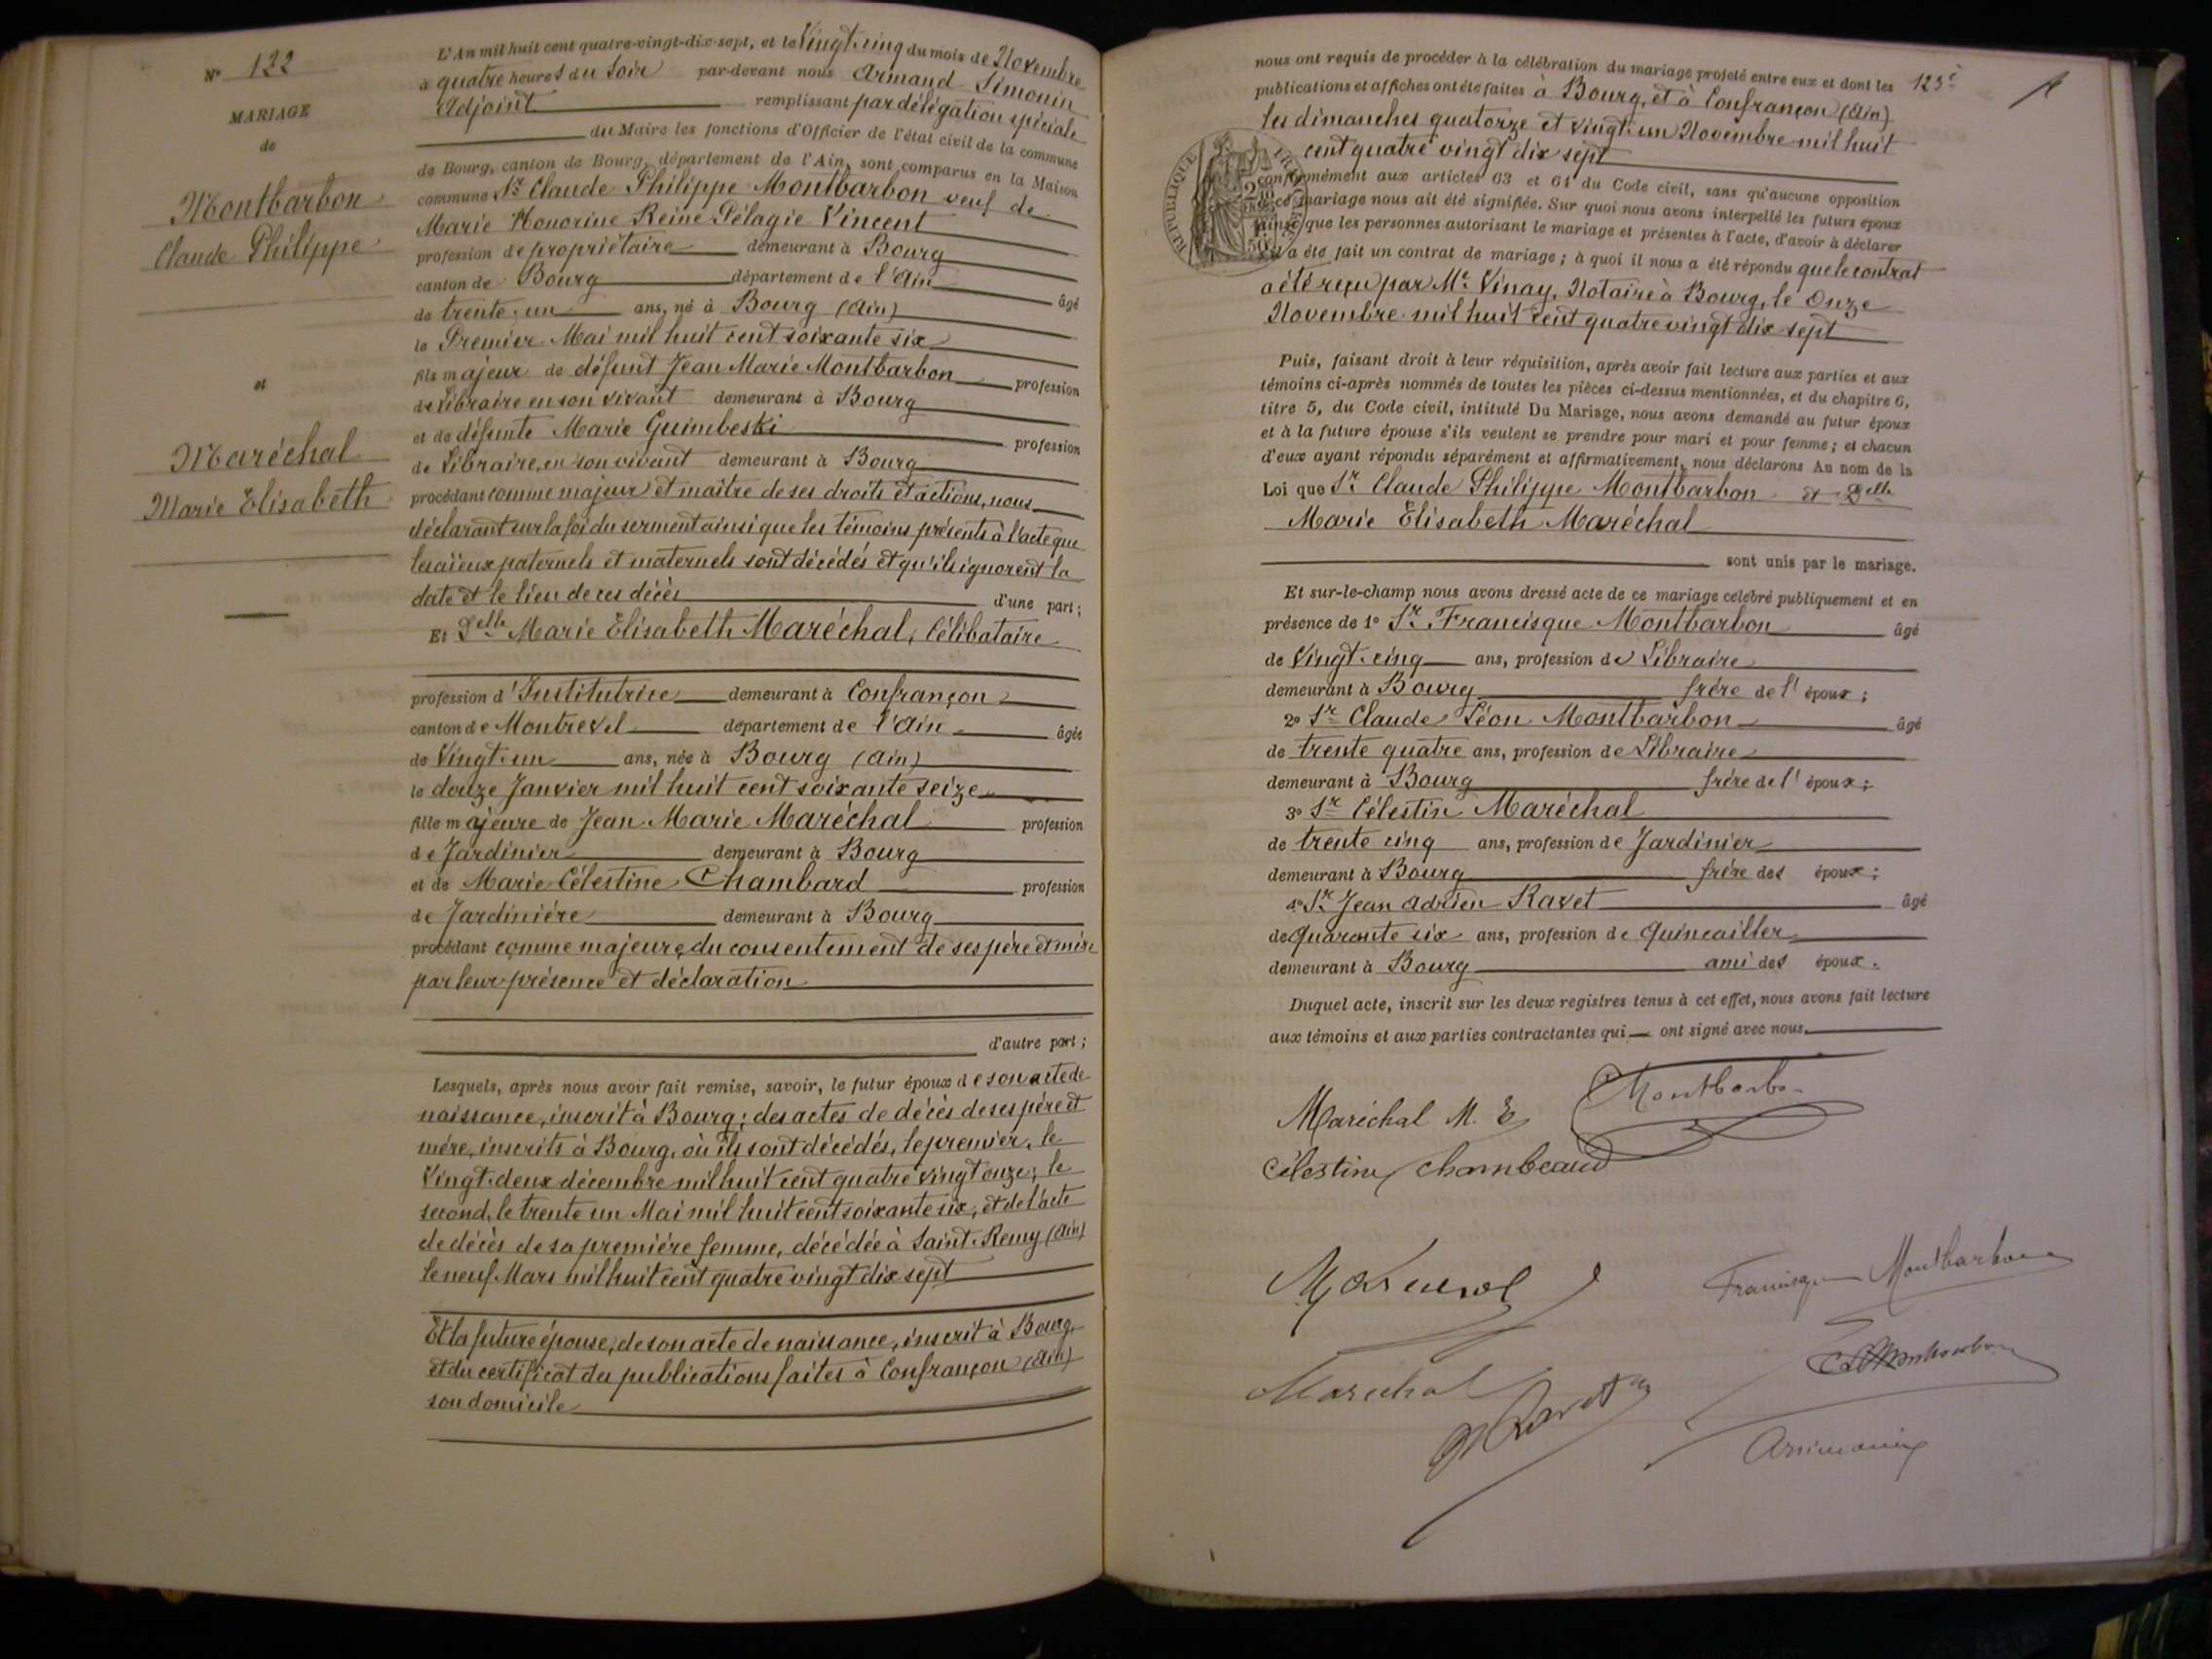 N° 122
MARIAGE
de
Montbarbon
Claude Philippe
et
Maréchal
Marie Elisabeth
L'An mil huit cent quatre-vingt-dix-sept, et le Vingt-cinq du mois de Novembre
à quatre heures du Soir par-devant nous Armand Simonin
Adjoint remplissant par délégation spéciale
du Maire les fonctions d'Officier de l'état civil de la commune
de Bourg, canton de Bourg, département de l'Ain, sont comparus en la Maison
commune Sr Claude Philippe Montbarbon veuf de
Marie Honorine Reine Pélagie Vincent
profession de propriétaire demeurant à Bourg
canton de Bourg département de l'Ain âgé
de trente-un ans, né à Bourg (Ain)
le Premier Mai mil huit cent soixante six
fils majeur de défunt Jean Marie Montbarbon profession
de Libraire en son vivant demeurant à Bourg
et de défunte Marie Guimbeski profession
de Libraire, en son vivant demeurant à Bourg
procédant comme majeur et maître de ses droits et actions, nous
déclarant sur la foi du serment ainsi que les témoins présents à l'acte que
les aïeux paternels et maternels sont décédés et qu'ils ignorent la
date et le lieu de ces décès d'une part;
Et Delle Marie Elisabeth Maréchal, Célibataire
profession d'Institutrice demeurant à Confrançon
canton de Montrevel département de l'Ain âgée
de Vingt-un ans, née à Bourg (Ain)
le douze Janvier mil huit cent soixante seize
fille majeure de Jean Marie Maréchal profession
de Jardinier demeurant à Bourg
et de Marie Célestine Chambard profession
de Jardinière demeurant à Bourg
procédant comme majeure, du consentement de ses père et mère
par leur présence et déclaration
d'autre part;
Lesquels, après nous avoir fait remise, savoir, le futur époux de son acte de
naissance, inscrit à Bourg; des actes de décès de ses père et
mère, inscrits à Bourg, où ils sont décédés, le premier, le
Vingt-deux décembre mil huit cent quatre vingt onze; le
second, le trente un Mai mil huit cent soixante six, et de l'acte
de décès de sa première femme, décédée à Saint-Remy (Ain)
le neuf Mars mil huit cent quatre vingt dix sept
Et la future épouse, de son acte de naissance, inscrit à Bourg,
et du certificat des publications faites à Confrançon (Ain)
son domicile
nous ont requis de procéder à la célébration du mariage projeté entre eux et dont les
publications et affiches ont été faites à Bourg, et à Confrançon (Ain)
les dimanches quatorze et vingt-un Novembre mil huit
cent quatre vingt dix sept
conformément aux articles 63 et 64 du Code civil, sans qu'aucune opposition
à ce mariage nous ait été signifiée. Sur quoi nous avons interpellé les futurs époux
ainsi que les personnes autorisant le mariage et présentes à l'acte, d'avoir à déclarer
s'il a été fait un contrat de mariage; à quoi il nous a été répondu que le contrat
a été reçu par Me Vinay, Notaire à Bourg, le Onze
Novembre mil huit cent quatre vingt dix sept
Puis, faisant droit à leur réquisition, après avoir fait lecture aux parties et aux
témoins ci-après nommés de toutes les pièces ci-dessus mentionnées, et du chapitre 6,
titre 5, du Code civil, intitulé Du Mariage, nous avons demandé au futur époux
et à la future épouse s'ils veulent se prendre pour mari et pour femme; et chacun
d'eux ayant répondu séparément et affirmativement, nous déclarons Au nom de la
Loi que Sr Claude Philippe Montbarbon et Delle
Marie Elisabeth Maréchal
sont unis par le mariage.
Et sur-le-champ nous avons dressé acte de ce mariage célébré publiquement et en
présence de 1° Sr Francisque Montbarbon âgé
de Vingt-cinq ans, profession de Libraire
demeurant à Bourg frère de l'époux;
2° Sr Claude Léon Montbarbon âgé
de trente quatre ans, profession de Libraire
demeurant à Bourg frère de l'époux;
3° Sr Célestin Maréchal
de trente cinq ans, profession de Jardinier
demeurant à Bourg frère des époux;
4° Sr Jean Adrien Ravet âgé
de quarante six ans, profession de Quincailler
demeurant à Bourg ami des époux.
Duquel acte, inscrit sur les deux registres tenus à cet effet, nous avons fait lecture
aux témoins et aux parties contractantes qui ont signé avec nous.
Maréchal M. E
Célestine Chambeaud
Francisque Montbarbon
Marechal
Ravet
RÉPUBLIQUE